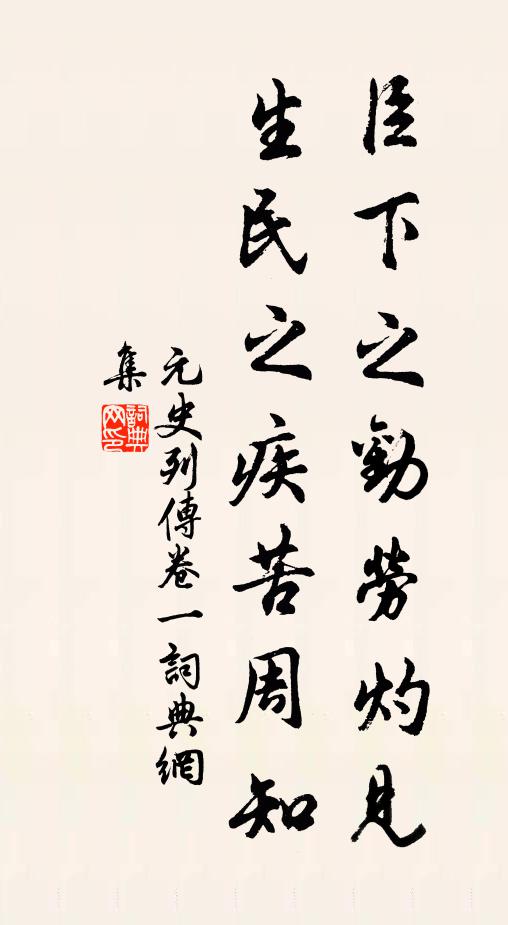 臣下之勤勞灼見
生民之疾苦周知
元史列傳卷一詞典網
集
詞典網印